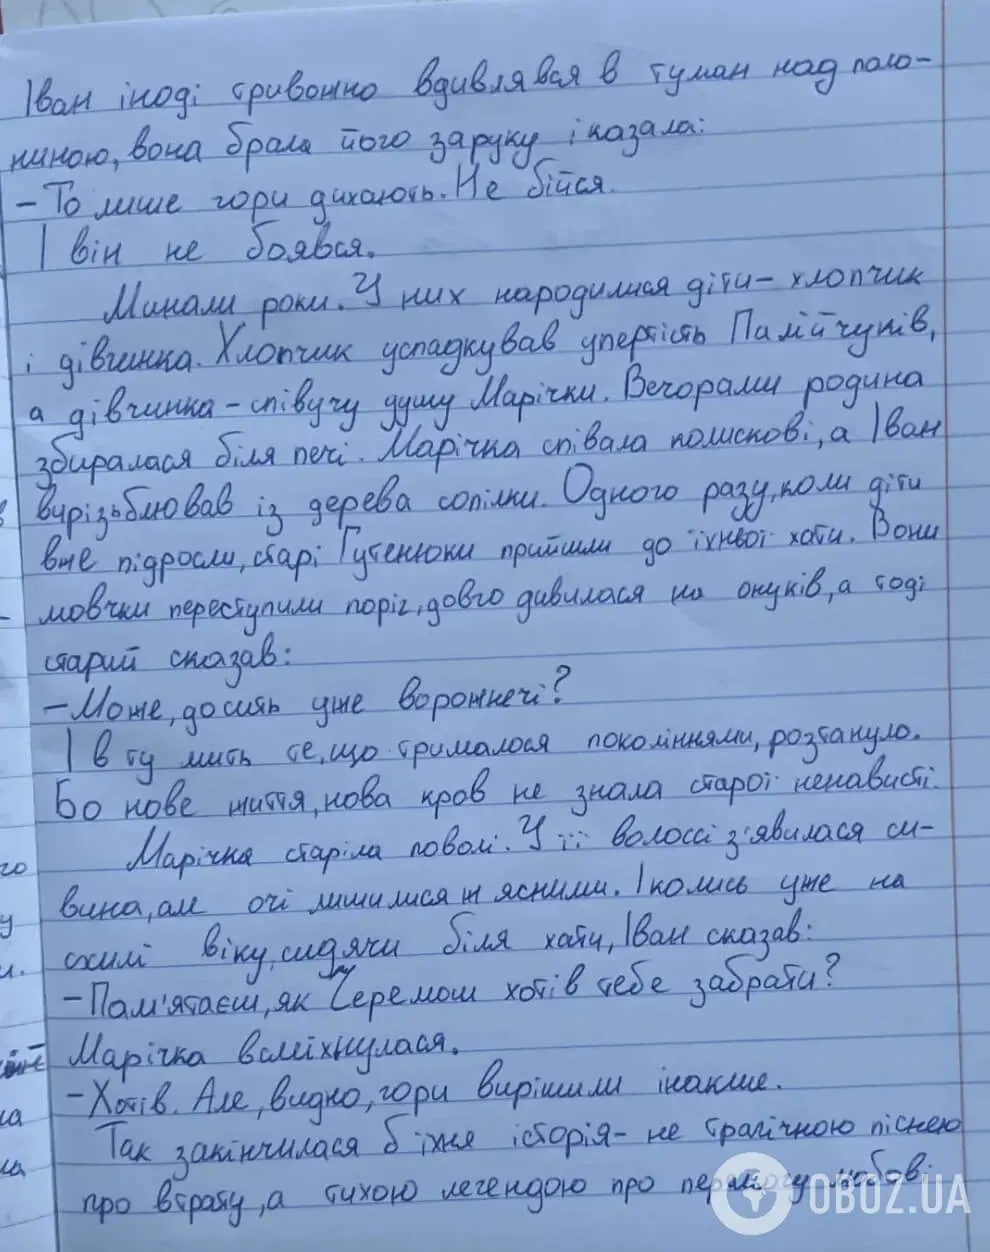 Іван іноді тривожно вдивлявся в туман над поло-
ниною, вона брала його за руку і казала:
- То лише гори дихають. Не бійся.
І він не боявся.
Минали роки. У них народилися діти - хлопчик
і дівчинка. Хлопчик успадкував упертість Палійчуків,
а дівчинка - співучу душу Марічки. Вечорами родина
збиралася біля печі. Марічка співала колискові, а Іван
вирізьблював із дерева сопілки. Одного разу, коли діти
вже підросли, старі Гутенюки прийшли до їхньої хати. Вони
мовчки переступили поріг, довго дивилася на онуків, а тоді
старий сказав:
- Може, досить уже ворожнечі?
І в ту мить те, що трималося поколіннями, розтануло.
Бо нове життя, нова кров не знала старої ненависті.
Марічка старіла поволі. У її волоссі з'явилася си-
вина, але очі лишилися ясними. І колись уже на
схилі віку, сидячи біля хати, Іван сказав:
- Пам'ятаєш, як Черемош хотів тебе забрати?
Марічка всміхнулася.
- Хотів. Але, видно, гори вирішили інакше.
Так закінчилася їхня історія - не трагічною піснею
про втрату, а тихою легендою про перемогу любові.
го
у
и.
ла
OBOZ.UA